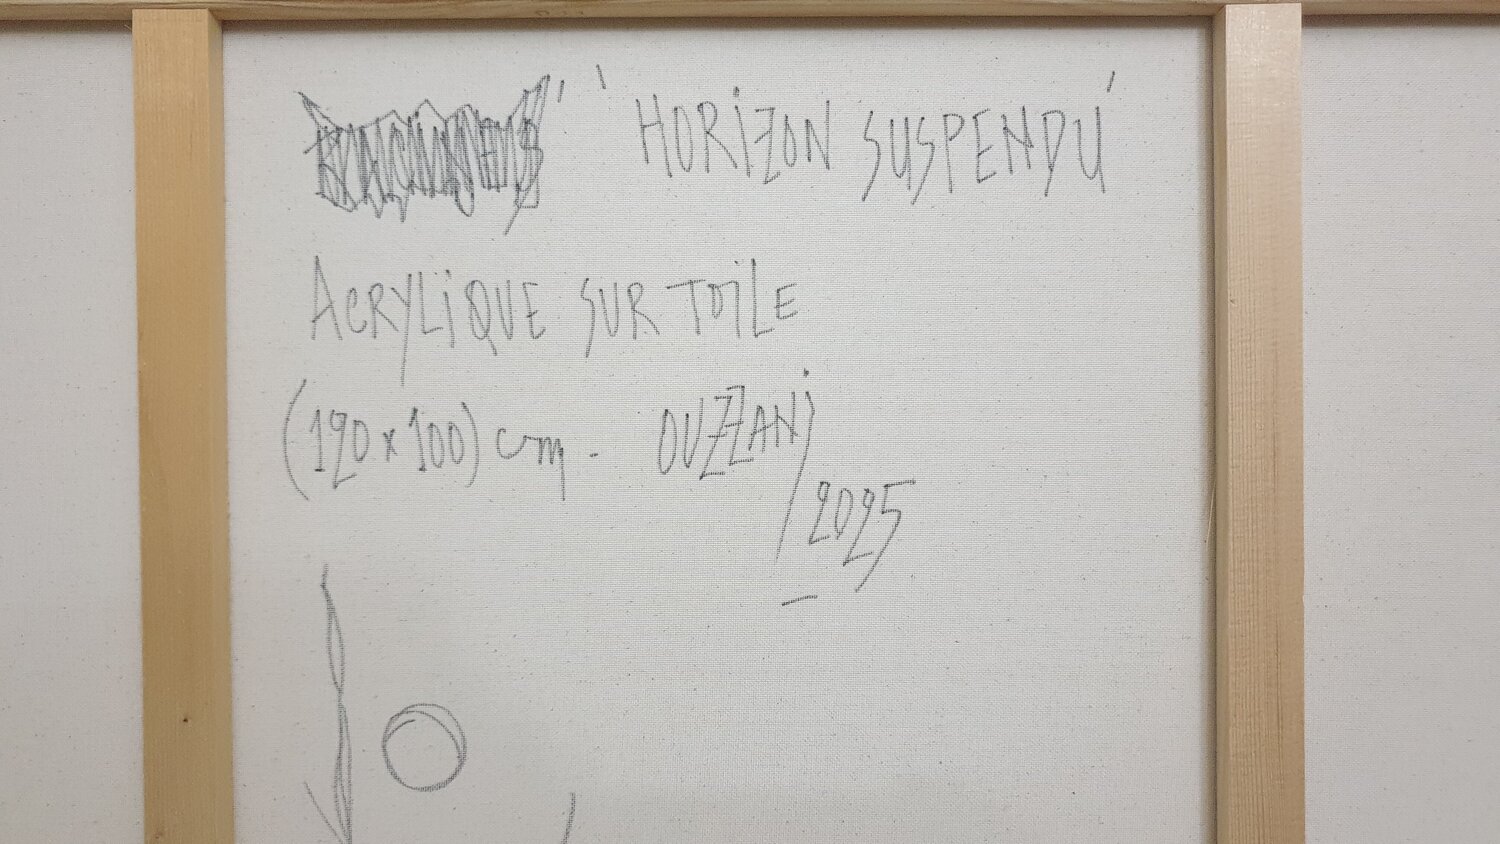 ' HORIZON SUSPENDU '
ACRYLIQUE SUR TOILE
(120 x 100) cm. OUZZANI
/2025